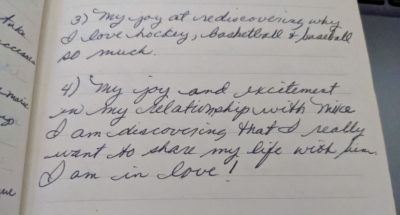 take
accessa
more
ng
ue
3) My joy at rediscovering why
I love hockey, basketball & baseball
so much.
4) My joy and excitement
in my relationship with Mike
I am discovering that I really
want to share my life with him.
I am in love!